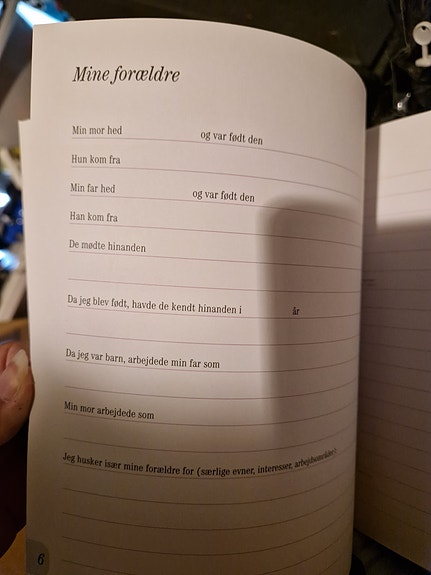 Mine forældre
Min mor hed og var født den
Hun kom fra
Min far hed og var født den
Han kom fra
De mødte hinanden
Da jeg blev født, havde de kendt hinanden i år
Da jeg var barn, arbejdede min far som
Min mor arbejdede som
Jeg husker især mine forældre for (særlige evner, interesser, arbejdsområder)
6